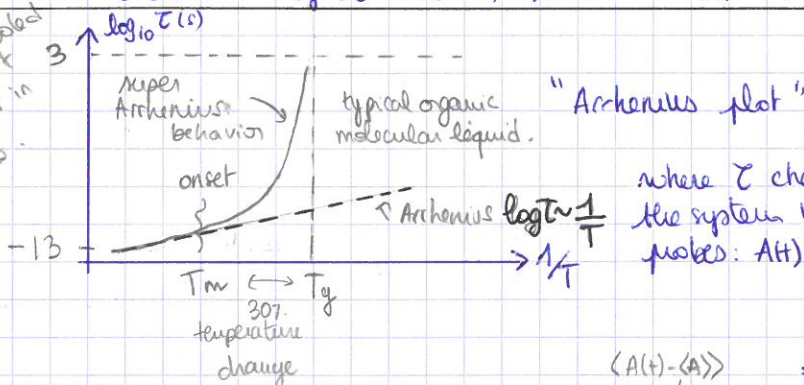 log₁₀ τ(s)
3
super
Arrhenius
behavior
typical organic
molecular liquid.
"Arrhenius plot"
onset
Arrhenius log τ ~ 1/T
where τ
the system
probes: A(t)
-13
1/T
Tm ⟷ Tg
30%
temperature
change
⟨A(t)-⟨A⟩⟩